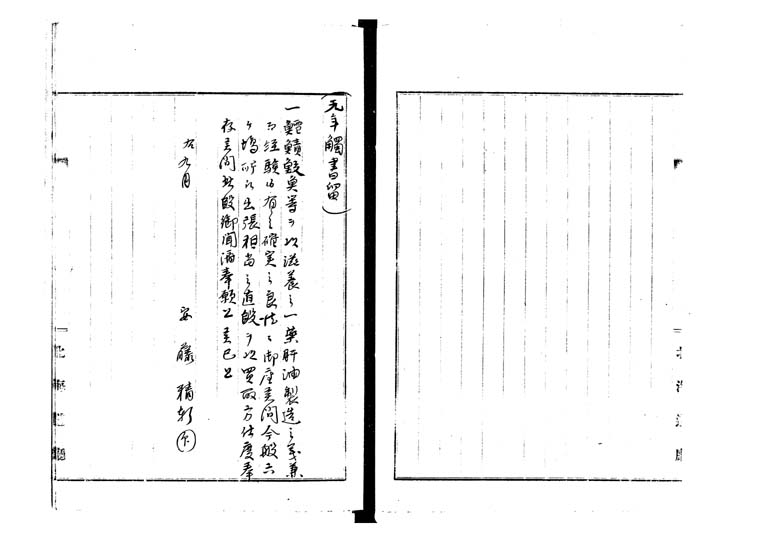 (元年觸書留)
一鱈鱝鮫魚等ヲ以滋養之一藥肝油製造之義兼
而経驗も有之確実之良法ニ御座候間今般六
ヶ場所江出張相当之直段ヲ以買取方仕度奉
存候間此段御聞濟奉願上候已上
九月
安藤精軒
北海道廳